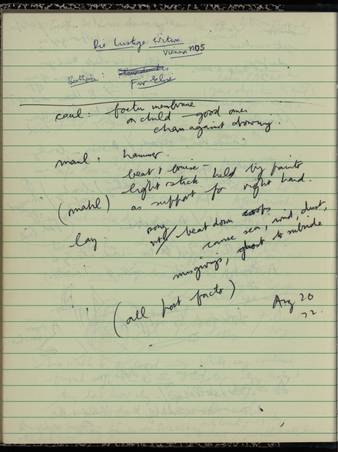 Die Lustige Witwe
Vienna 1905
Beethoven:
Für Elise
caul: foetus membrane
on child — good omen
charm against drowning.
maul: hammer
beat & bruise —
(mahl) light stick held by painter
as support for right hand.
lay
beat down
cause sea, wind, dust,
misgivings, ghost to subside
(all post facto)
Aug 20
72.